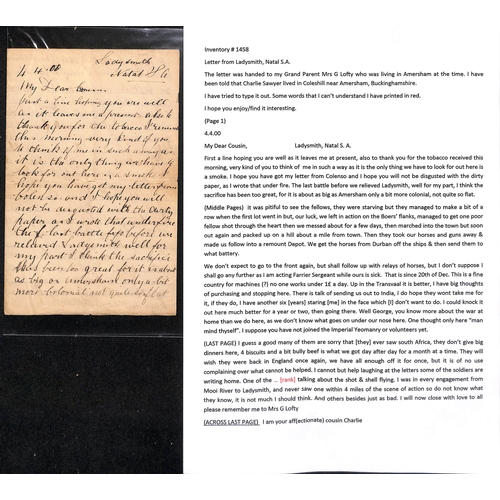 Ladysmith
4.4.00 Natal S A
My Dear Cousin
first a line hoping you are well
as it leaves me at present also to
thank you for the tobacco I received
this morning very kind of you
to think of me in such a way as
it is the only thing we have to
look for out here is a smoke I
hope you have got my letter from
and I hope you will
not be disgusted with the dirty
paper as I wrote that under fire
the last battle before we
relieved Ladysmith well for
my part I think the sacrifice
has been too great for it is about
as big as Amersham only a bit
more colonial not quite so flat
Inventory # 1458
Letter from Ladysmith, Natal S.A.
The letter was handed to my Grand Parent Mrs G Lofty who was living in Amersham at the time. I have
been told that Charlie Sawyer lived in Coleshill near Amersham, Buckinghamshire.
I have tried to type it out. Some words that I can't understand I have printed in red.
I hope you enjoy/find it interesting.
(Page 1)
4.4.00
My Dear Cousin, Ladysmith, Natal S. A.
First a line hoping you are well as it leaves me at present, also to thank you for the tobacco received this
morning, very kind of you to think of me in such a way as it is the only thing we have to look for out here is
a smoke. I hope you have got my letter from Colenso and I hope you will not be disgusted with the dirty
paper, as I wrote that under fire. The last battle before we relieved Ladysmith, well for my part, I think the
sacrifice has been too great, for it is about as big as Amersham only a bit more colonial, not quite so flat.
(Middle Pages) it was pitiful to see the fellows, they were starving but they managed to make a bit of a
row when the first lot went in but, our luck, we left in action on the Boers' flanks, managed to get one poor
fellow shot through the heart then we messed about for a few days, then marched into the town but soon
out again and packed up on a hill about a mile from town. Then they took our horses and guns away &
made us follow into a remount Depot. We get the horses from Durban off the ships & then send them to
what battery.
We don't expect to go to the front again, but shall follow up with relays of horses, but I don't suppose I
shall go any further as I am acting Farrier Sergeant while ours is sick. That is since 20th of Dec. This is a fine
country for machines (?) no one works under 1£ a day. Up in the Transvaal it is better, I have big thoughts
of purchasing and stopping here. There is talk of sending us out to India, I do hope they wont take me for
it, if they do, I have another six [years] staring [me] in the face which [I] don't want to do. I could knock it
out here much better for a year or two, then going there. Well George, you know more about the war at
home than we do here, as we don't know what goes on under our nose here. One thought only here "man
mind thyself". I suppose you have not joined the Imperial Yeomanry or volunteers yet.
(LAST PAGE) I guess a good many of them are sorry that [they] ever saw south Africa, they don't give big
dinners here, 4 biscuits and a bit bully beef is what we got day after day for a month at a time. They will
wish they were back in England once again, we have all enough off it for once, but it is of no use
complaining over what cannot be helped. I cannot but help laughing at the letters some of the soldiers are
writing home. One of the ... [rank] talking about the shot & shell flying. I was in every engagement from
Mooi River to Ladysmith, and never saw one within 4 miles of the scene of action so do not know what
they know, it is not much I should think. And others besides just as bad. I will now close with love to all
please remember me to Mrs G Lofty
(ACROSS LAST PAGE) I am your aff[ectionate] cousin Charlie